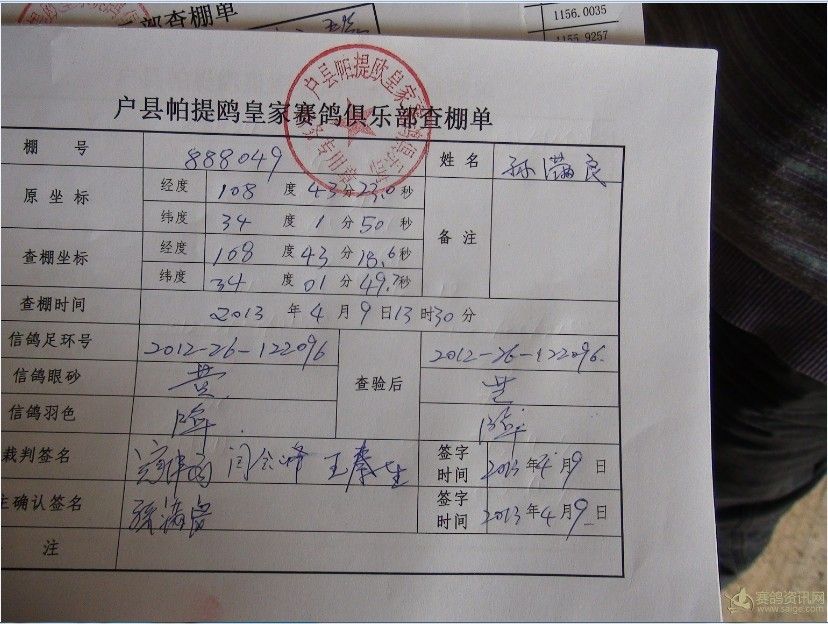 部查棚单
1156.0035
1155.9257
户县帕提鸥皇家赛鸽俱乐部查棚单
棚 号 888049 姓 名 孙满良
原 坐 标 经度 108 度 43 分 23.0 秒 备 注
纬度 34 度 1 分 50 秒
查棚坐标 经度 108 度 43 分 18.6 秒
纬度 34 度 01 分 49.7 秒
查棚时间 2013 年 4 月 9 日 13 时 30 分
信鸽足环号 2012-26-122096 查验后 2012-26-122096.
信鸽眼砂 黄 黄
信鸽羽色
裁判签名 王秦生 签字时间 2013 年 4 月 9 日
主确认签名 孙满良 签字时间 2013 年 4 月 9 日
注
赛鸽资讯网
www.saige.com